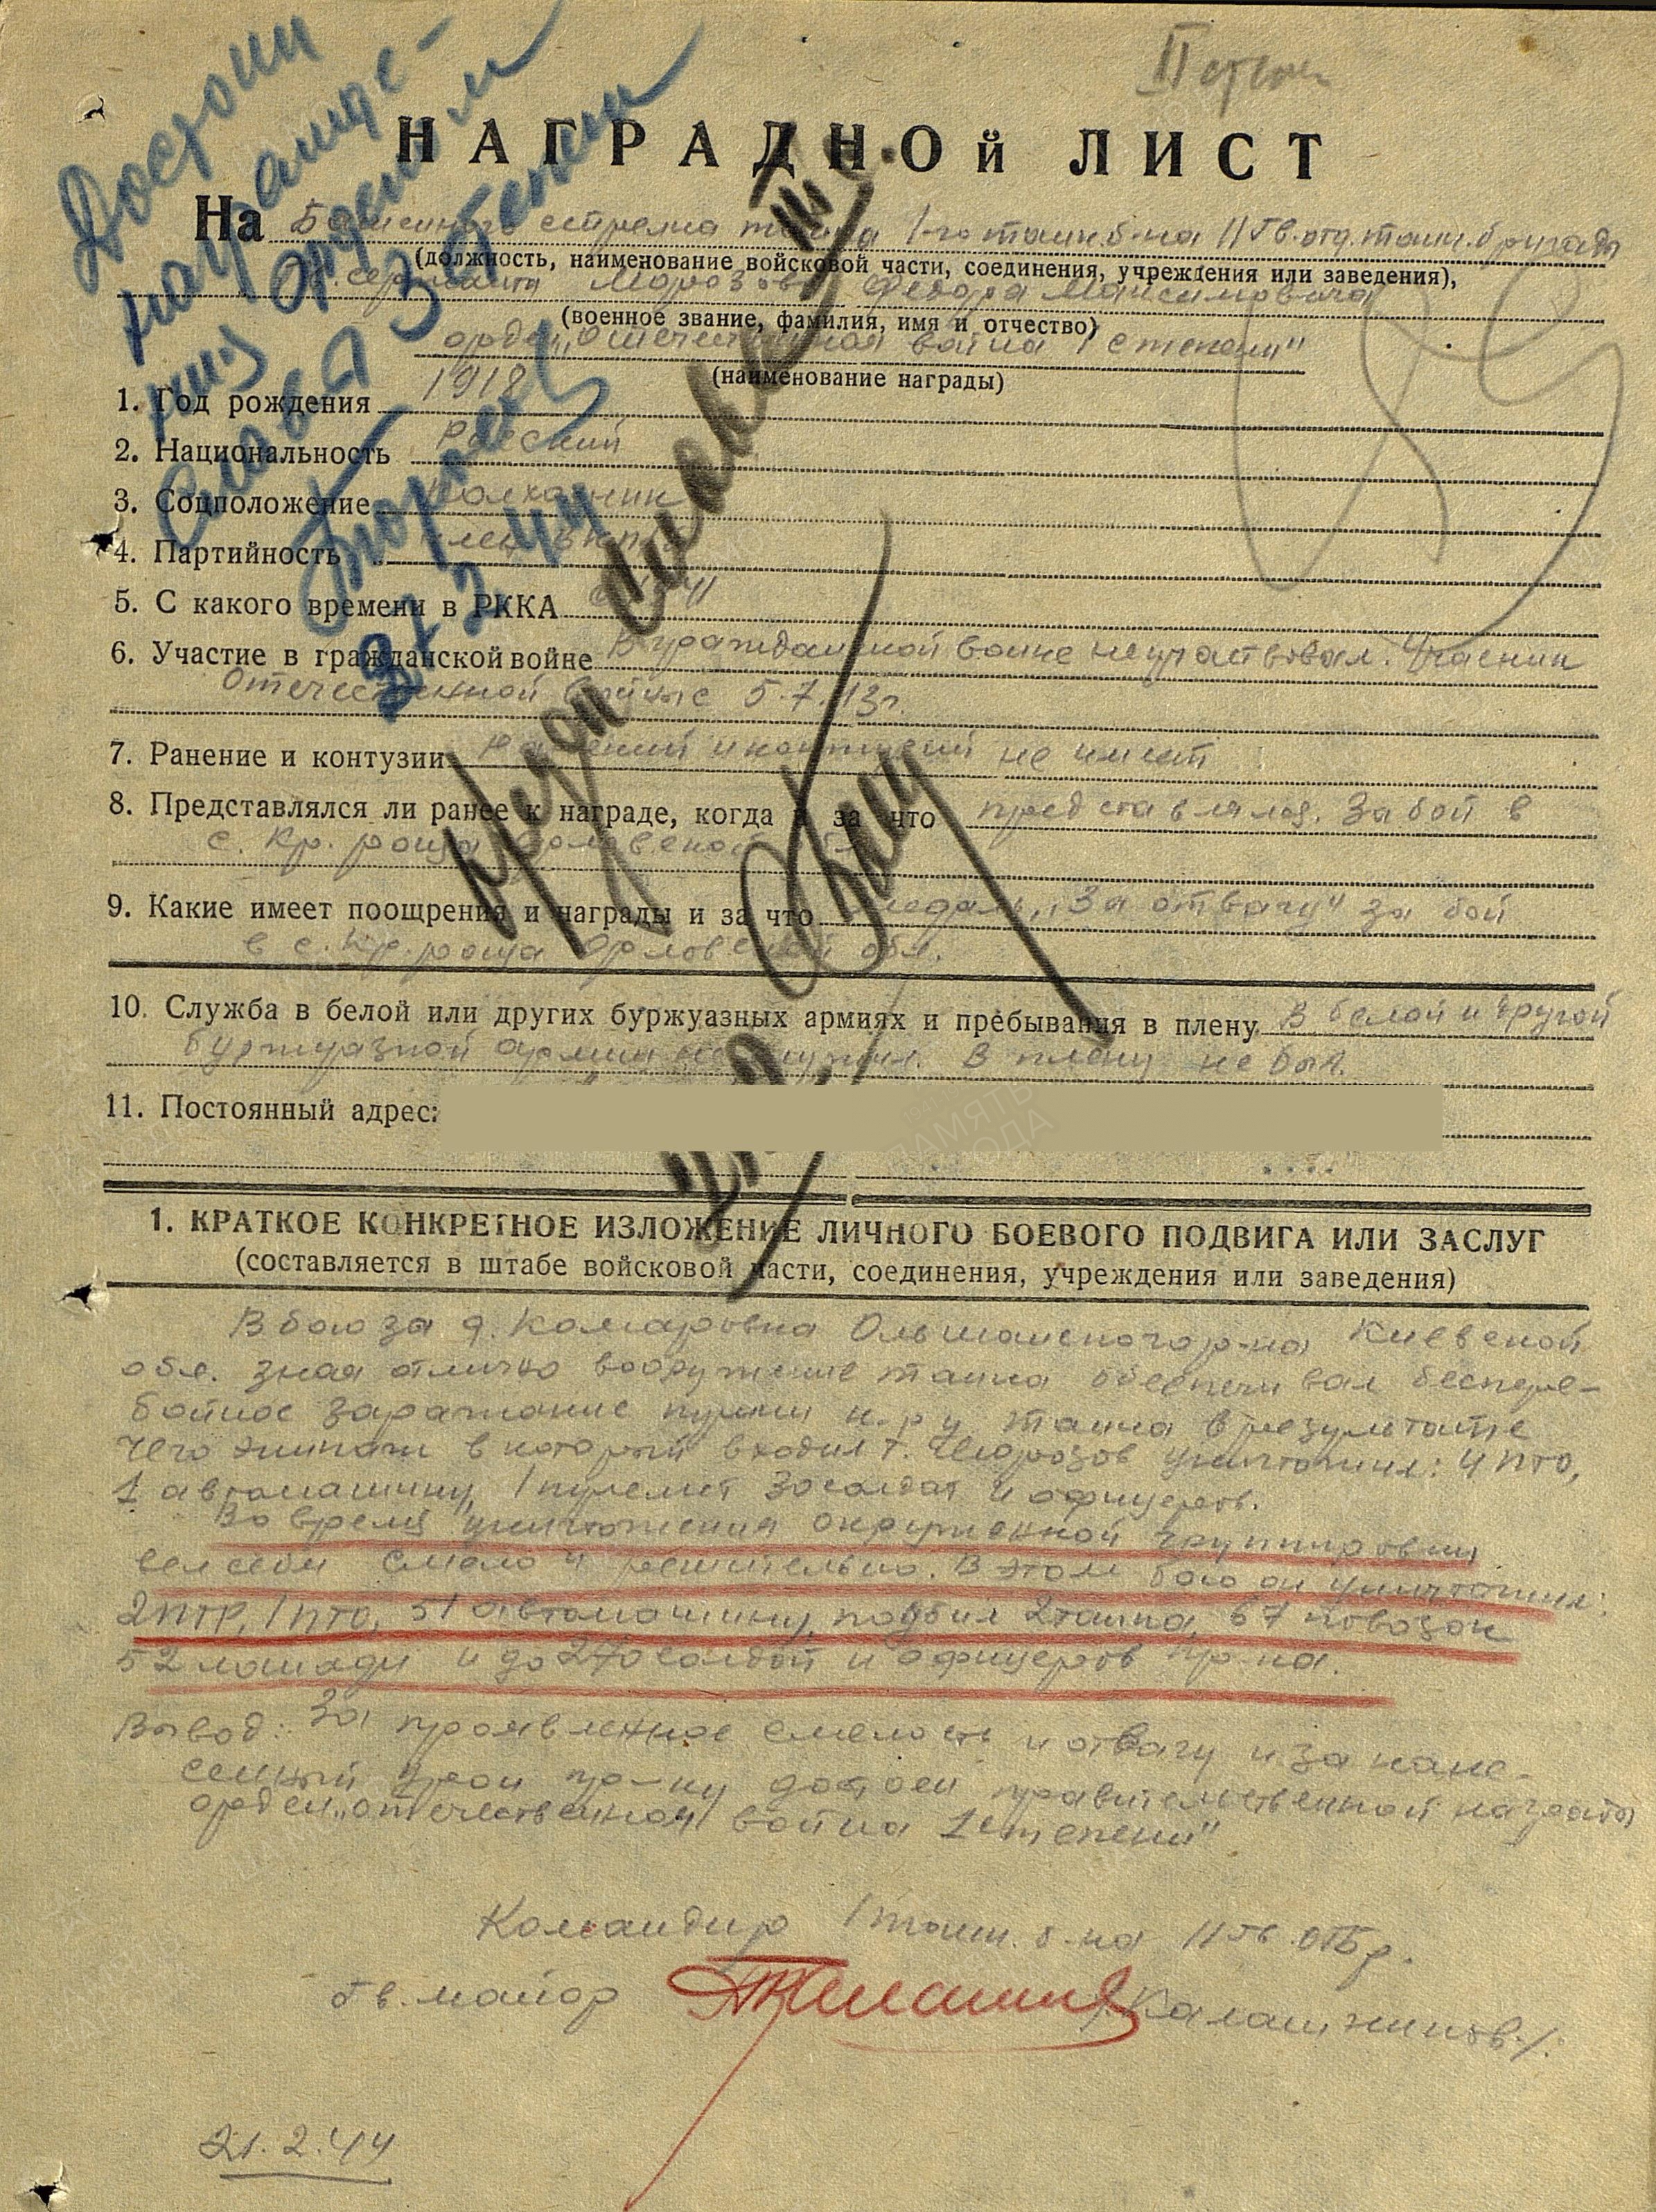 II степ
НАГРАДНОй ЛИСТ
На Башенного стрелка танка 1-го танк.б-на 11 Гв.отд.танк.бригады
(должность, наименование войсковой части, соединения, учреждения или заведения),
гв. сержанта Морозова Федора Максимовича
(военное звание, фамилия, имя и отчество)
орден „Отечественная война 1 степени"
(наименование награды)
1. Год рождения 1918
2. Национальность Русский
3. Соцположение Колхозник
4. Партийность член ВКП(б)
5. С какого времени в РККА
6. Участие в гражданской войне В гражданской войне не участвовал. Участник
Отечественной войны с 5.7.43г.
7. Ранение и контузии Ранений и контузий не имеет
8. Представлялся ли ранее к награде, когда и за что представлялся. За бой в
с. Кр. роща Орловской обл.
9. Какие имеет поощрения и награды и за что медаль „За отвагу" за бой
в с. Кр. роща Орловской обл.
10. Служба в белой или других буржуазных армиях и пребывания в плену В белой и другой
буржуазной армии не служил. В плену не был.
11. Постоянный адрес:
ПАМЯТЬ
НАРОДА
Достоин
награжде-
ния орденом
Слава 3 степени
3/3 44
Медаль
1. КРАТКОЕ КОНКРЕТНОЕ ИЗЛОЖЕНИЕ ЛИЧНОГО БОЕВОГО ПОДВИГА ИЛИ ЗАСЛУГ
(составляется в штабе войсковой части, соединения, учреждения или заведения)
В бою за д. Комаровка Ольшанского р-на Киевской
обл. зная отлично вооружение танка обеспечивал беспере-
бойное заражание пушки танка в результате
чего экипаж в который входил т. Морозов уничтожил: 4 ПТО,
1 автомашину, 1 пулемет 30 солдат и офицеров.
Во время уничтожения окруженной группировки
вел себя смело и решительно. В этом бою он уничтожил:
2 ПТР, 1 ПТО, 51 автомашину, подбил 2 танка, 67 повозок
52 лошади и до 270 солдат и офицеров пр-ка.
Вывод: За проявленное смелость и отвагу и за нане-
сенный урон пр-ку достоен правительственной награды
орден „Отечественная война 1 степени"
Командир 1 танк. б-на 11 гв. ОТБр.
Гв. майор /Калашников/.
21.2.44